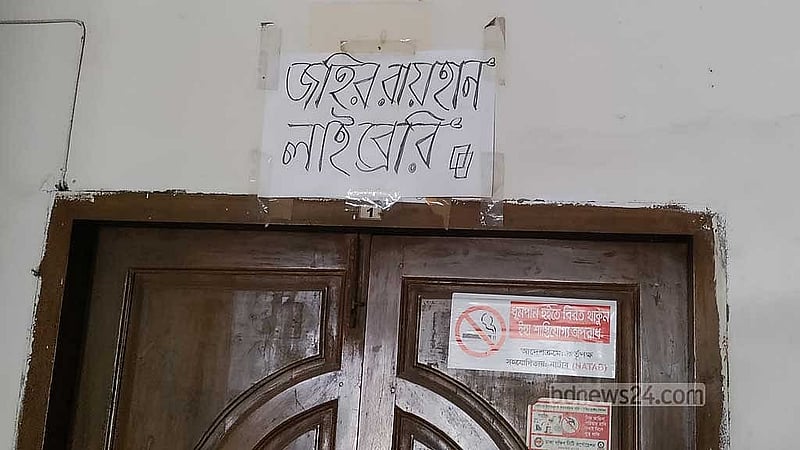 জহির রায়হান
লাইব্রেরি
1
ধূমপান হইতে বিরত থাকুন
ইহা শাস্তিযোগ্য অপরাধ
আদেশক্রমে: কর্তৃপক্ষ
সহযোগিতায়: নাটাব (NATAB)
bdnews24.com